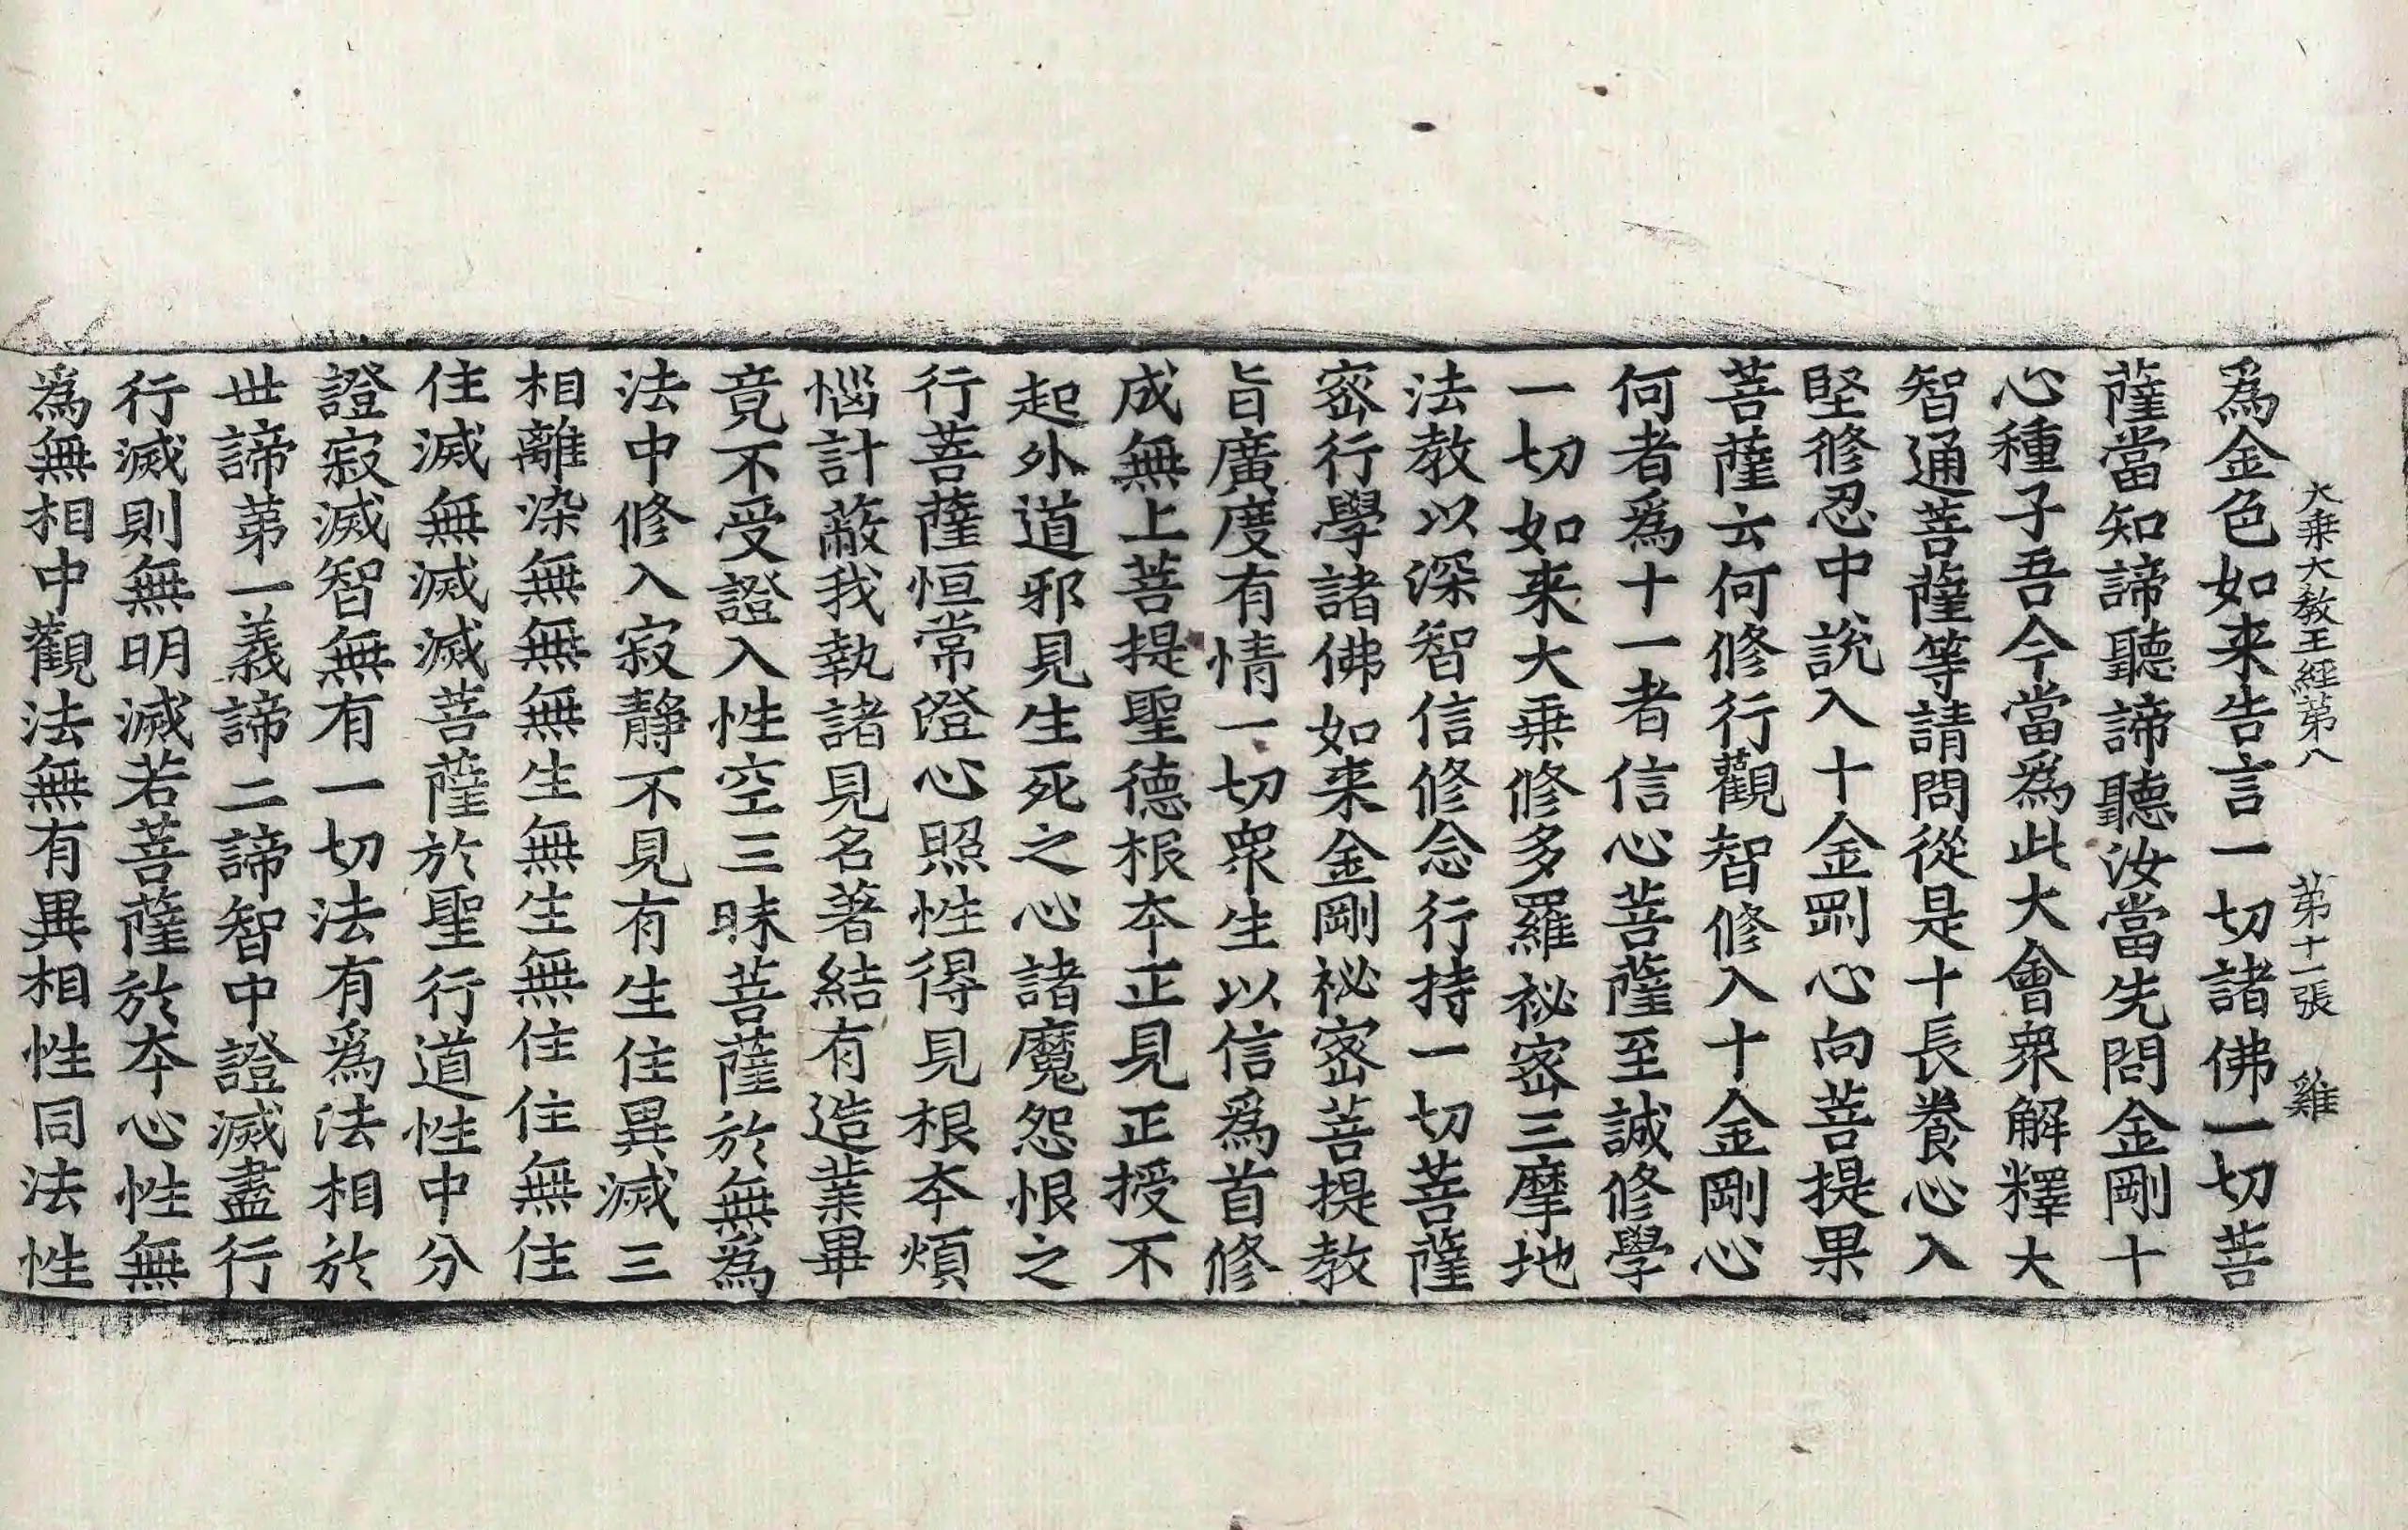 大乗大教王經第八　第十一張　雞
為金色如来告言一切諸佛一切菩
薩當知諦聽諦聽汝當先問金剛十
心種子吾今當為此大會衆解釋大
智通菩薩等請問從是十長養心入
堅修忍中説入十金剛心向菩提果
菩薩云何修行觀智修入十金剛心
何者爲十一者信心菩薩至誠修學
一切如来大乗修多羅祕宻三摩地
法教以深智信修念行持一切菩薩
宻行學諸佛如来金剛祕宻菩提教
旨廣度有情一切衆生以信爲首修
成無上菩提聖德根夲正見正授不
起外道邪見生死之心諸魔怨恨之
行菩薩恒常澄心照性得見根夲煩
惱計蔽我執諸見名著結有造業畢
竟不受證入性空三昧菩薩於無為
法中修入寂静不見有生住異滅三
相離染無無無生無生無住住無住
住滅無滅滅菩薩於聖行道性中分
證寂滅智無有一切法有爲法相於
世諦第一義諦二諦智中證滅盡行
行滅則無明滅若菩薩於夲心性無
爲無相中觀法無有異相性同法性